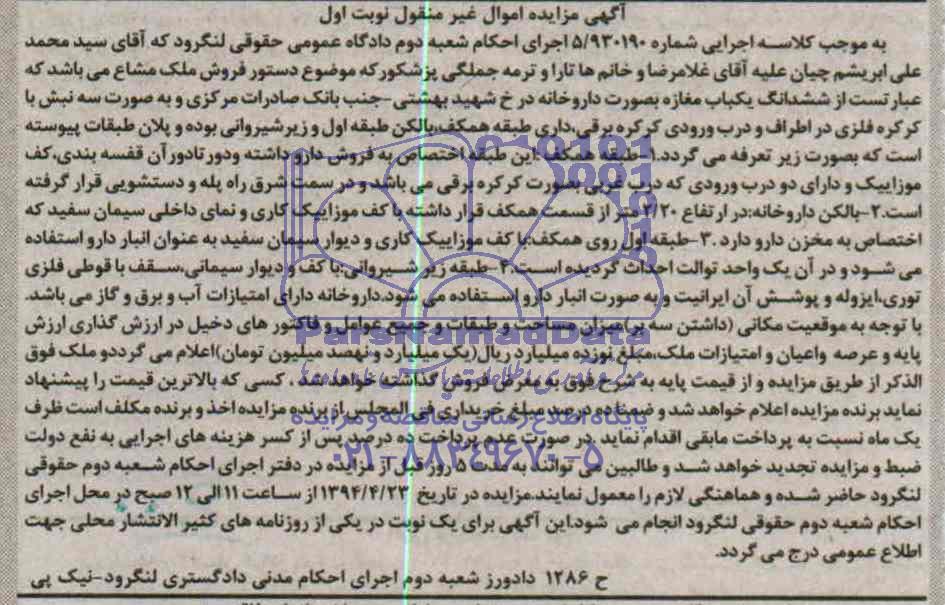 آگهی مزایده اموال غیر منقول نوبت اول
به موجب کلاسه اجرایی شماره ۵/۹۳۰۱۹۰ اجرای احکام شعبه دوم دادگاه عمومی حقوقی لنگرود که آقای سید محمد
علی ابریشم چیان علیه آقای غلامرضا و خانم ها تارا و ترمه جملگی پزشکور که موضوع دستور فروش ملک مشاع می باشد که
عبارتست از ششدانگ یکباب مغازه بصورت داروخانه در خ شهید بهشتی-جنب بانک صادرات مرکزی و به صورت سه نبش با
کرکره فلزی در اطراف و درب ورودی کرکره برقی،داری طبقه همکف،بالکن طبقه اول و زیرشیروانی بوده و پلان طبقات پیوسته
است که بصورت زیر تعرفه می گردد.۱-طبقه همکف :این طبقه اختصاص به فروش دارو داشته ودور تادور آن قفسه بندی،کف
موزاییک و دارای دو درب ورودی که درب غربی بصورت کرکره برقی می باشد و در سمت شرق راه پله و دستشویی قرار گرفته
است.۲-بالکن داروخانه:در ارتفاع ۲/۲۰ متر از قسمت همکف قرار داشته با کف موزاییک کاری و نمای داخلی سیمان سفید که
اختصاص به مخزن دارو دارد .۳-طبقه اول روی همکف:با کف موزاییک کاری و دیوار سیمان سفید به عنوان انبار دارو استفاده
می شود و در آن یک واحد توالت احداث گردیده است.۴-طبقه زیر شیروانی:با کف و دیوار سیمانی،سقف با قوطی فلزی
توری،ایزوله و پوشش آن ایرانیت و به صورت انبار دارو استفاده می شود.داروخانه دارای امتیازات آب و برق و گاز می باشد.
با توجه به موقعیت مکانی (داشتن سه بر)میزان مساحت و طبقات و جمیع عوامل و فاکتور های دخیل در ارزش گذاری ارزش
پایه و عرصه واعیان و امتیازات ملک،مبلغ نوزده میلیارد ریال(یک میلیارد و نهصد میلیون تومان)اعلام می گرددو ملک فوق
الذکر از طریق مزایده و از قیمت پایه به شرح فوق به معرض فروش گذاشته خواهد شد ، کسی که بالاترین قیمت را پیشنهاد
نماید برنده مزایده اعلام خواهد شد و ضمنا ده درصد مبلغ خریداری فی المجلس از برنده مزایده اخذ و برنده مکلف است ظرف
یک ماه نسبت به پرداخت مابقی اقدام نماید .در صورت عدم پرداخت ده درصد پس از کسر هزینه های اجرایی به نفع دولت
ضبط و مزایده تجدید خواهد شد و طالبین می توانند به مدت ۵ روز قبل از مزایده در دفتر اجرای احکام شعبه دوم حقوقی
لنگرود حاضر شده و هماهنگی لازم را معمول نمایند.مزایده در تاریخ ۱۳۹۴/۴/۲۳ از ساعت ۱۱ الی ۱۲ صبح در محل اجرای
احکام شعبه دوم حقوقی لنگرود انجام می شود.این آگهی برای یک نوبت در یکی از روزنامه های کثیر الانتشار محلی جهت
اطلاع عمومی درج می گردد.
ح ۱۲۸۶ دادورز شعبه دوم اجرای احکام مدنی دادگستری لنگرود-نیک پی
ParsNamadData
پایگاه اطلاع رسانی مناقصه و مزایده
۰۲۱-۸۸۳۴۹۶۷۰-۵